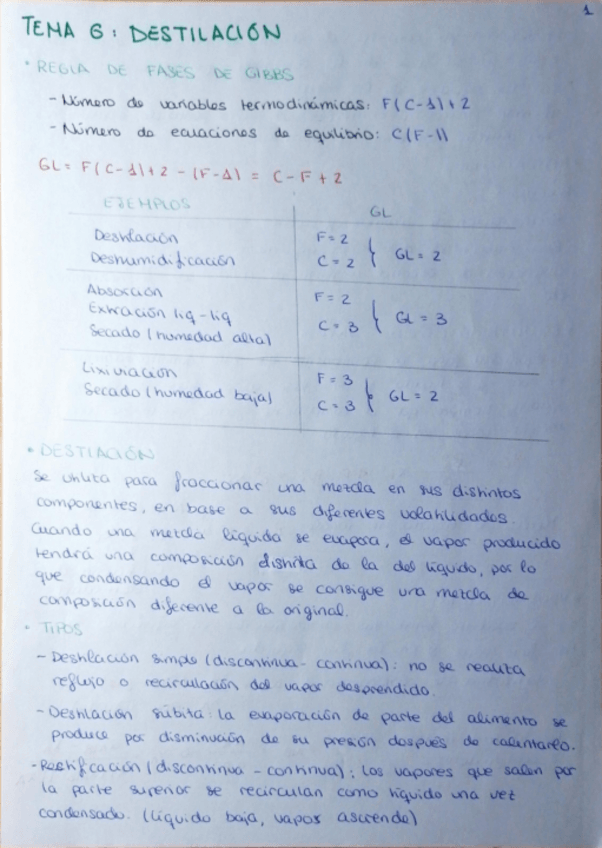 1
TEMA 6: DESTILACIÓN
• REGLA DE FASES DE GIBBS
- Número de variables termodinámicas: F(C-1)+2
- Número de ecuaciones de equilibrio: C(F-1)
GL = F(C-1)+2 - (F-1) = C-F+2
EJEMPLOS GL
Destilación F=2
Deshumidificación C=2 } GL=2
Absorción F=2
Extracción liq-liq
Secado (humedad alta) C=3 } GL=3
Lixiviación F=3
Secado (humedad baja) C=3 } GL=2
• DESTILACIÓN
Se utiliza para fraccionar una mezcla en sus distintos
componentes, en base a sus diferentes volatilidades.
Cuando una mezcla líquida se evapora, el vapor producido
tendrá una composición distinta de la del líquido, por lo
que condensando el vapor se consigue una mezcla de
composición diferente a la original.
• TIPOS
- Destilación simple (discontinua - continua): no se realiza
reflujo o recirculación del vapor desprendido.
- Destilación súbita: la evaporación de parte del alimento se
produce por disminución de su presión después de calentarlo.
- Rectificación (discontinua - continua): los vapores que salen por
la parte superior se recirculan como líquido una vez
condensado. (líquido baja, vapor asciende)